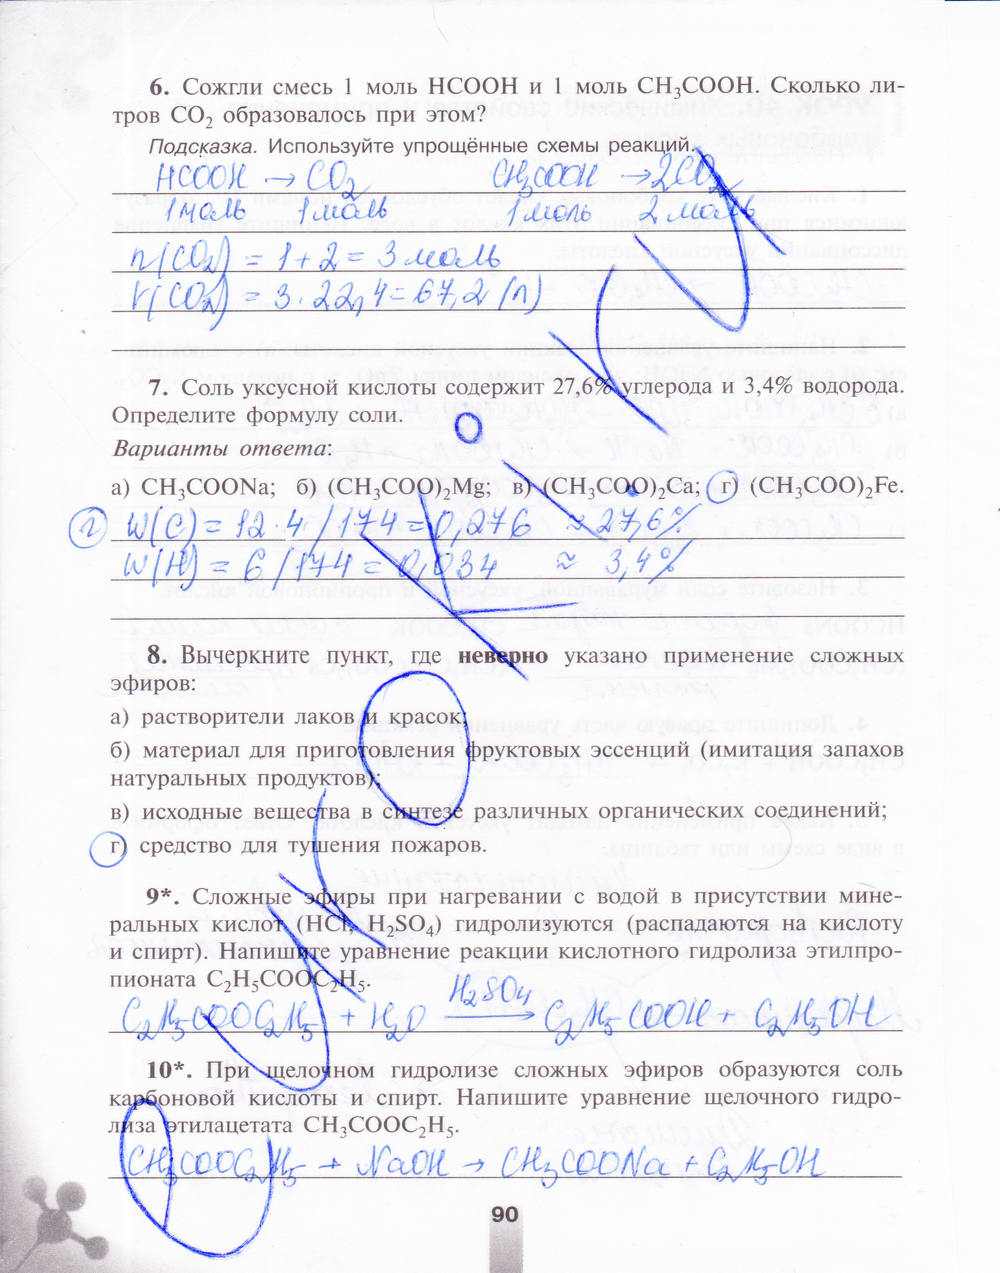 6. Сожгли смесь 1 моль HCOOH и 1 моль CH₃COOH. Сколько ли-
тров CO₂ образовалось при этом?
Подсказка. Используйте упрощённые схемы реакций.
HCOOH → CO₂ CH₃COOH → 2CO₂
1 моль 1 моль 1 моль 2 моль
n(CO₂) = 1 + 2 = 3 моль
V(CO₂) = 3 · 22,4 = 67,2 (л)
7. Соль уксусной кислоты содержит 27,6% углерода и 3,4% водорода.
Определите формулу соли.
Варианты ответа:
а) CH₃COONa; б) (CH₃COO)₂Mg; в) (CH₃COO)₂Ca; г) (CH₃COO)₂Fe.
г) W(C) = 12 · 4 / 174 = 0,276 ≈ 27,6%
W(H) = 6 / 174 = 0,034 ≈ 3,4%
8. Вычеркните пункт, где неверно указано применение сложных
эфиров:
а) растворители лаков и красок;
б) материал для приготовления фруктовых эссенций (имитация запахов
натуральных продуктов);
в) исходные вещества в синтезе различных органических соединений;
г) средство для тушения пожаров.
9*. Сложные эфиры при нагревании с водой в присутствии мине-
ральных кислот (HCl, H₂SO₄) гидролизуются (распадаются на кислоту
и спирт). Напишите уравнение реакции кислотного гидролиза этилпро-
пионата C₂H₅COOC₂H₅.
H₂SO₄
C₂H₅COOC₂H₅ + H₂O → C₂H₅COOH + C₂H₅OH
10*. При щелочном гидролизе сложных эфиров образуются соль
карбоновой кислоты и спирт. Напишите уравнение щелочного гидро-
лиза этилацетата CH₃COOC₂H₅.
CH₃COOC₂H₅ + NaOH → CH₃COONa + C₂H₅OH
90